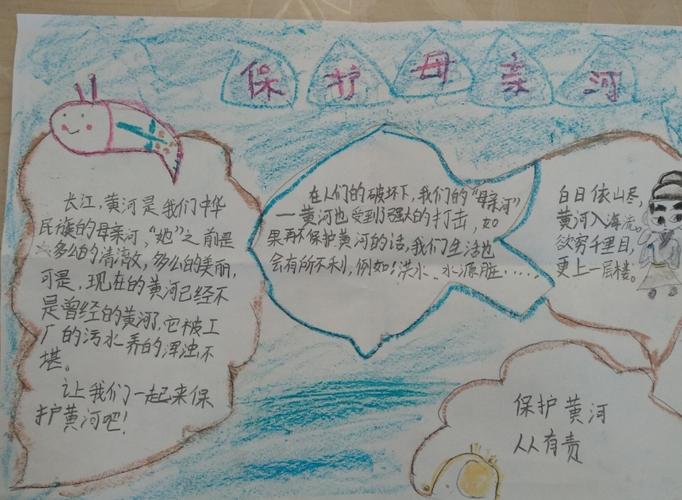 保护母亲河
长江,黄河是我们中华
民族的母亲河,“她”之前是
多么的清澈,多么的美丽,
可是,现在的黄河已经不
是曾经的黄河了,它被工
厂的污水弄的浑浊不
堪。
让我们一起来保
护黄河吧!
在人们的破坏下,我们的“母亲河”
一黄河也受到了强大的打击,如
果再不保护黄河的话,我们生活也
会有所不利,例如!洪水、水源脏......
白日依山尽,
黄河入海流。
欲穷千里目,
更上一层楼。
保护黄河
人人有责